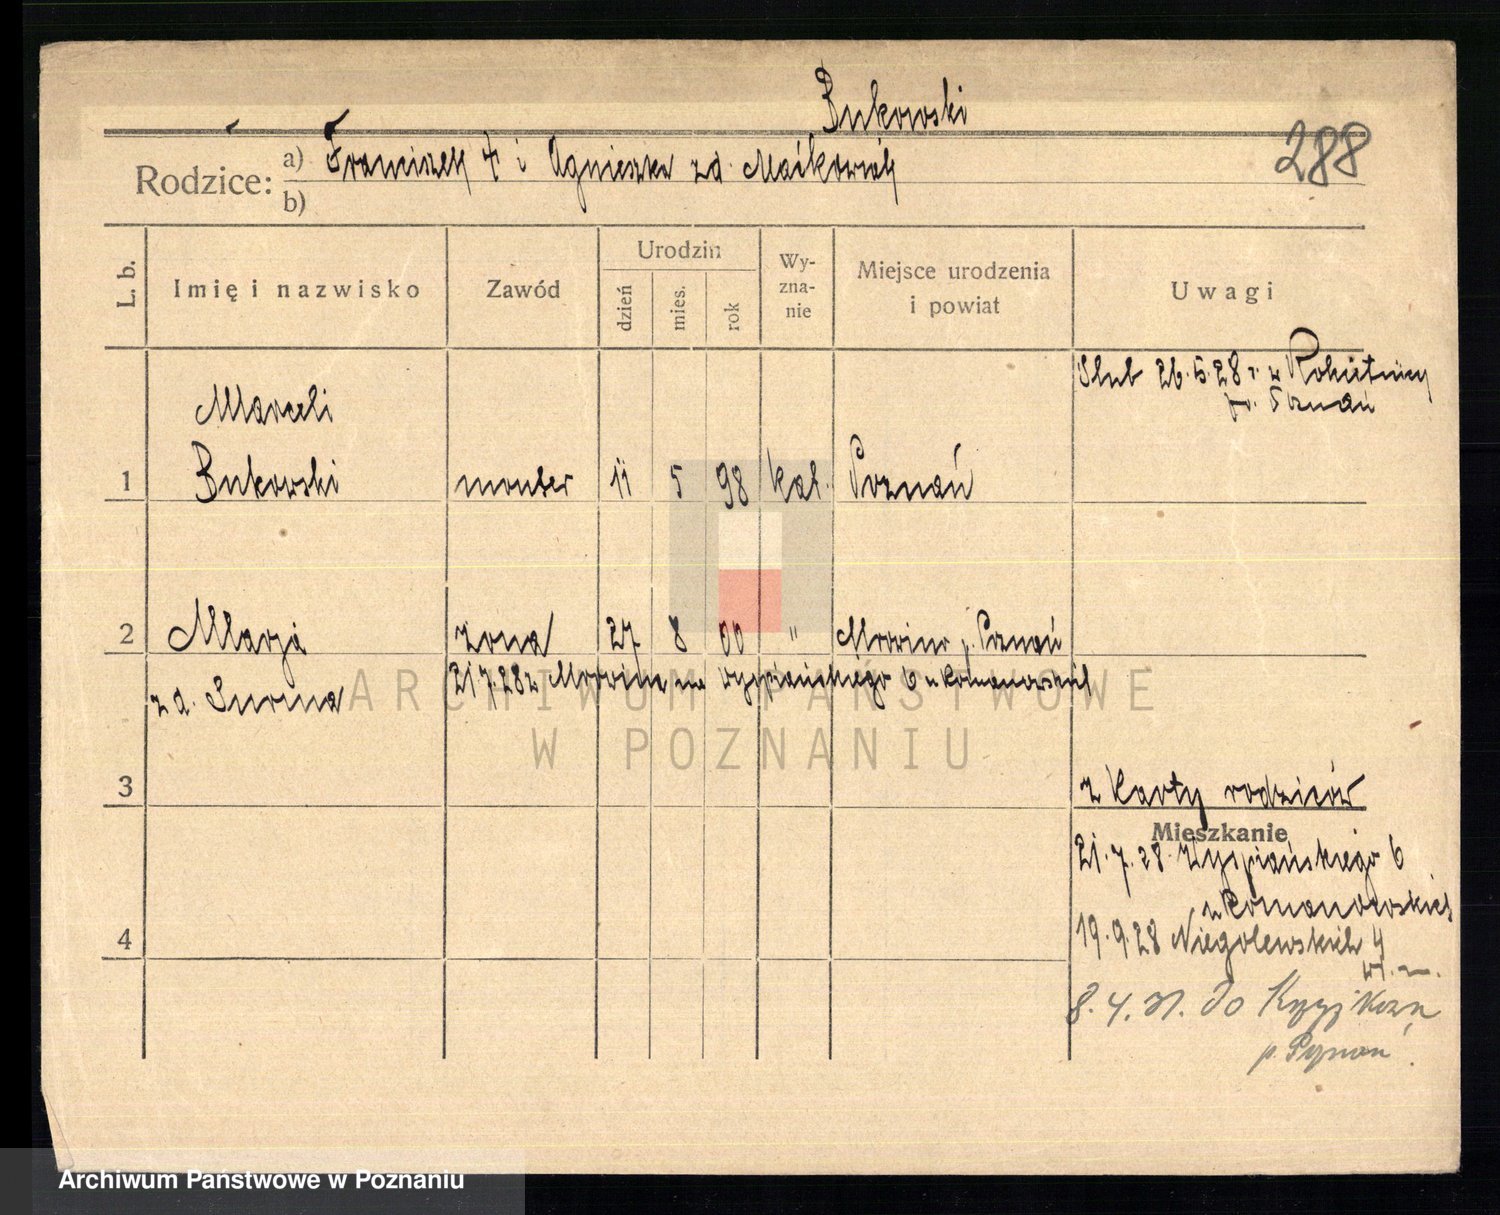 Bukowski
288
Rodzice: a) Franciszek † i Agnieszka zd. Maćkowiak
b)
L. b. Imię i nazwisko Zawód Urodzin dzień mies. rok Wyznanie Miejsce urodzenia i powiat Uwagi
Ślub 26.5.28 r. w Rokietnicy
p. Poznań
Marceli
1 Bukowski monter 11 5 98 kat. Poznań
2 Marja żona 27 8 00 " Mrowino p. Poznań
z d. Surma 21.7.28 z Mrowina na Wyspiańskiego 6 u Romanowskich
ARCHIWUM PAŃSTWOWE
W POZNANIU
3
z karty rodziców
Mieszkanie
21.7.28 Wyspiańskiego 6
u Romanowskich
4
19.9.28 Niegolewskich 4
8.4.31. do
p. Poznań.
Archiwum Państwowe w Poznaniu